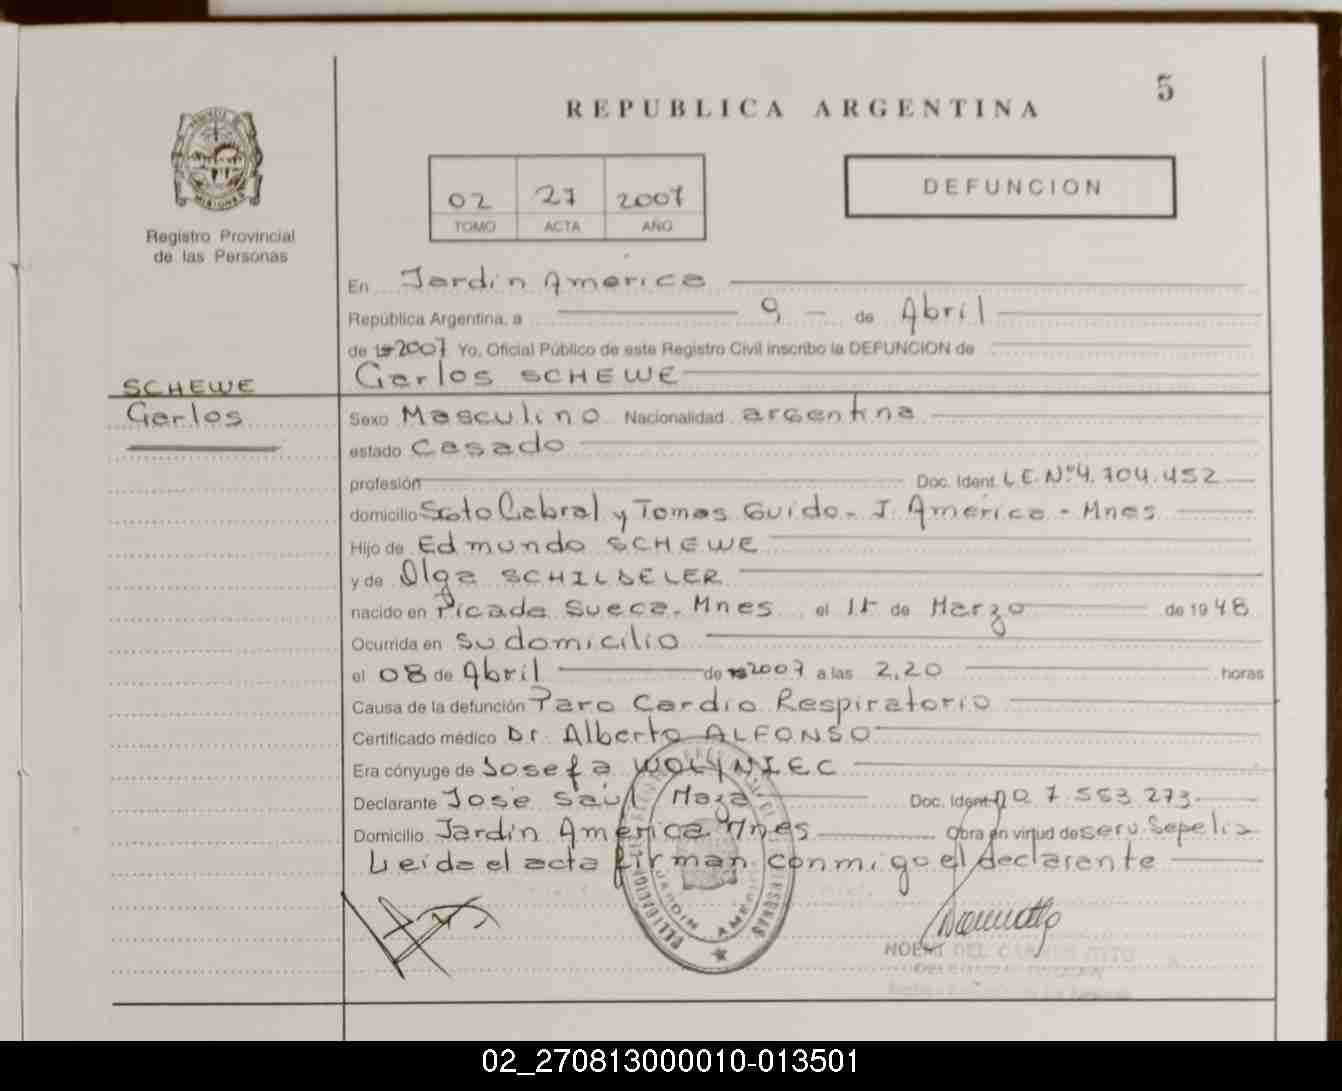 5
REPUBLICA ARGENTINA
02 27 2007
TOMO ACTA AÑO
DEFUNCION
MISIONES
Registro Provincial
de las Personas
En Jardín América
República Argentina, a 9 - de Abril
de 19 2007 Yo, Oficial Público de este Registro Civil inscribo la DEFUNCION de
Carlos SCHEWE
SCHEWE
Carlos
Sexo Masculino Nacionalidad argentina
estado Casado
profesión Doc. Ident. L.E. Nº 4.704.452
domicilio Soto Cabral y Tomas Guido - J. América - Mnes
Hijo de Edmundo SCHEWE
y de Olga SCHILDELER
nacido en Picada Sueca - Mnes el 11 de Marzo de 1948
Ocurrida en su domicilio
el 08 de Abril de 19 2007 a las 2,20 horas
Causa de la defunción Paro Cardio Respiratorio
Certificado médico Dr. Alberto ALFONSO
Era cónyuge de Josefa WOLYNIEC
Declarante José Saúl Maza Doc. Ident. 7 553 273
Domicilio Jardín América Mnes Obra en virtud de serv. Sepelio
Leída el acta firman conmigo el declarante
JARDIN AMERICA
02_270813000010-013501